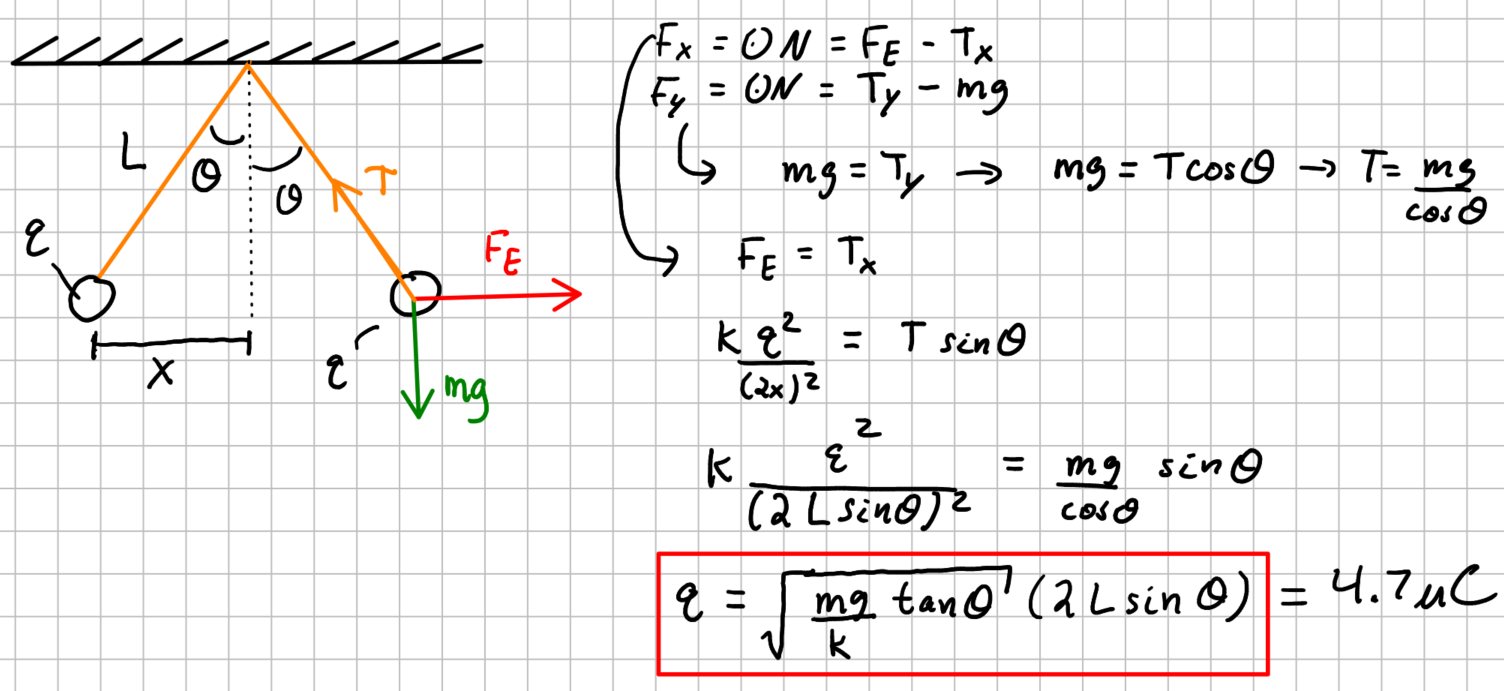 L
θ
θ
T
q
F_E
x
q
mg
F_x = 0N = F_E - T_x
F_y = 0N = T_y - mg
mg = T_y → mg = T cosθ → T = mg/cosθ
F_E = T_x
k q²/(2x)² = T sinθ
k q²/(2 L sinθ)² = mg/cosθ sinθ
q = √(mg/k tanθ) (2 L sin θ) = 4.7 uC